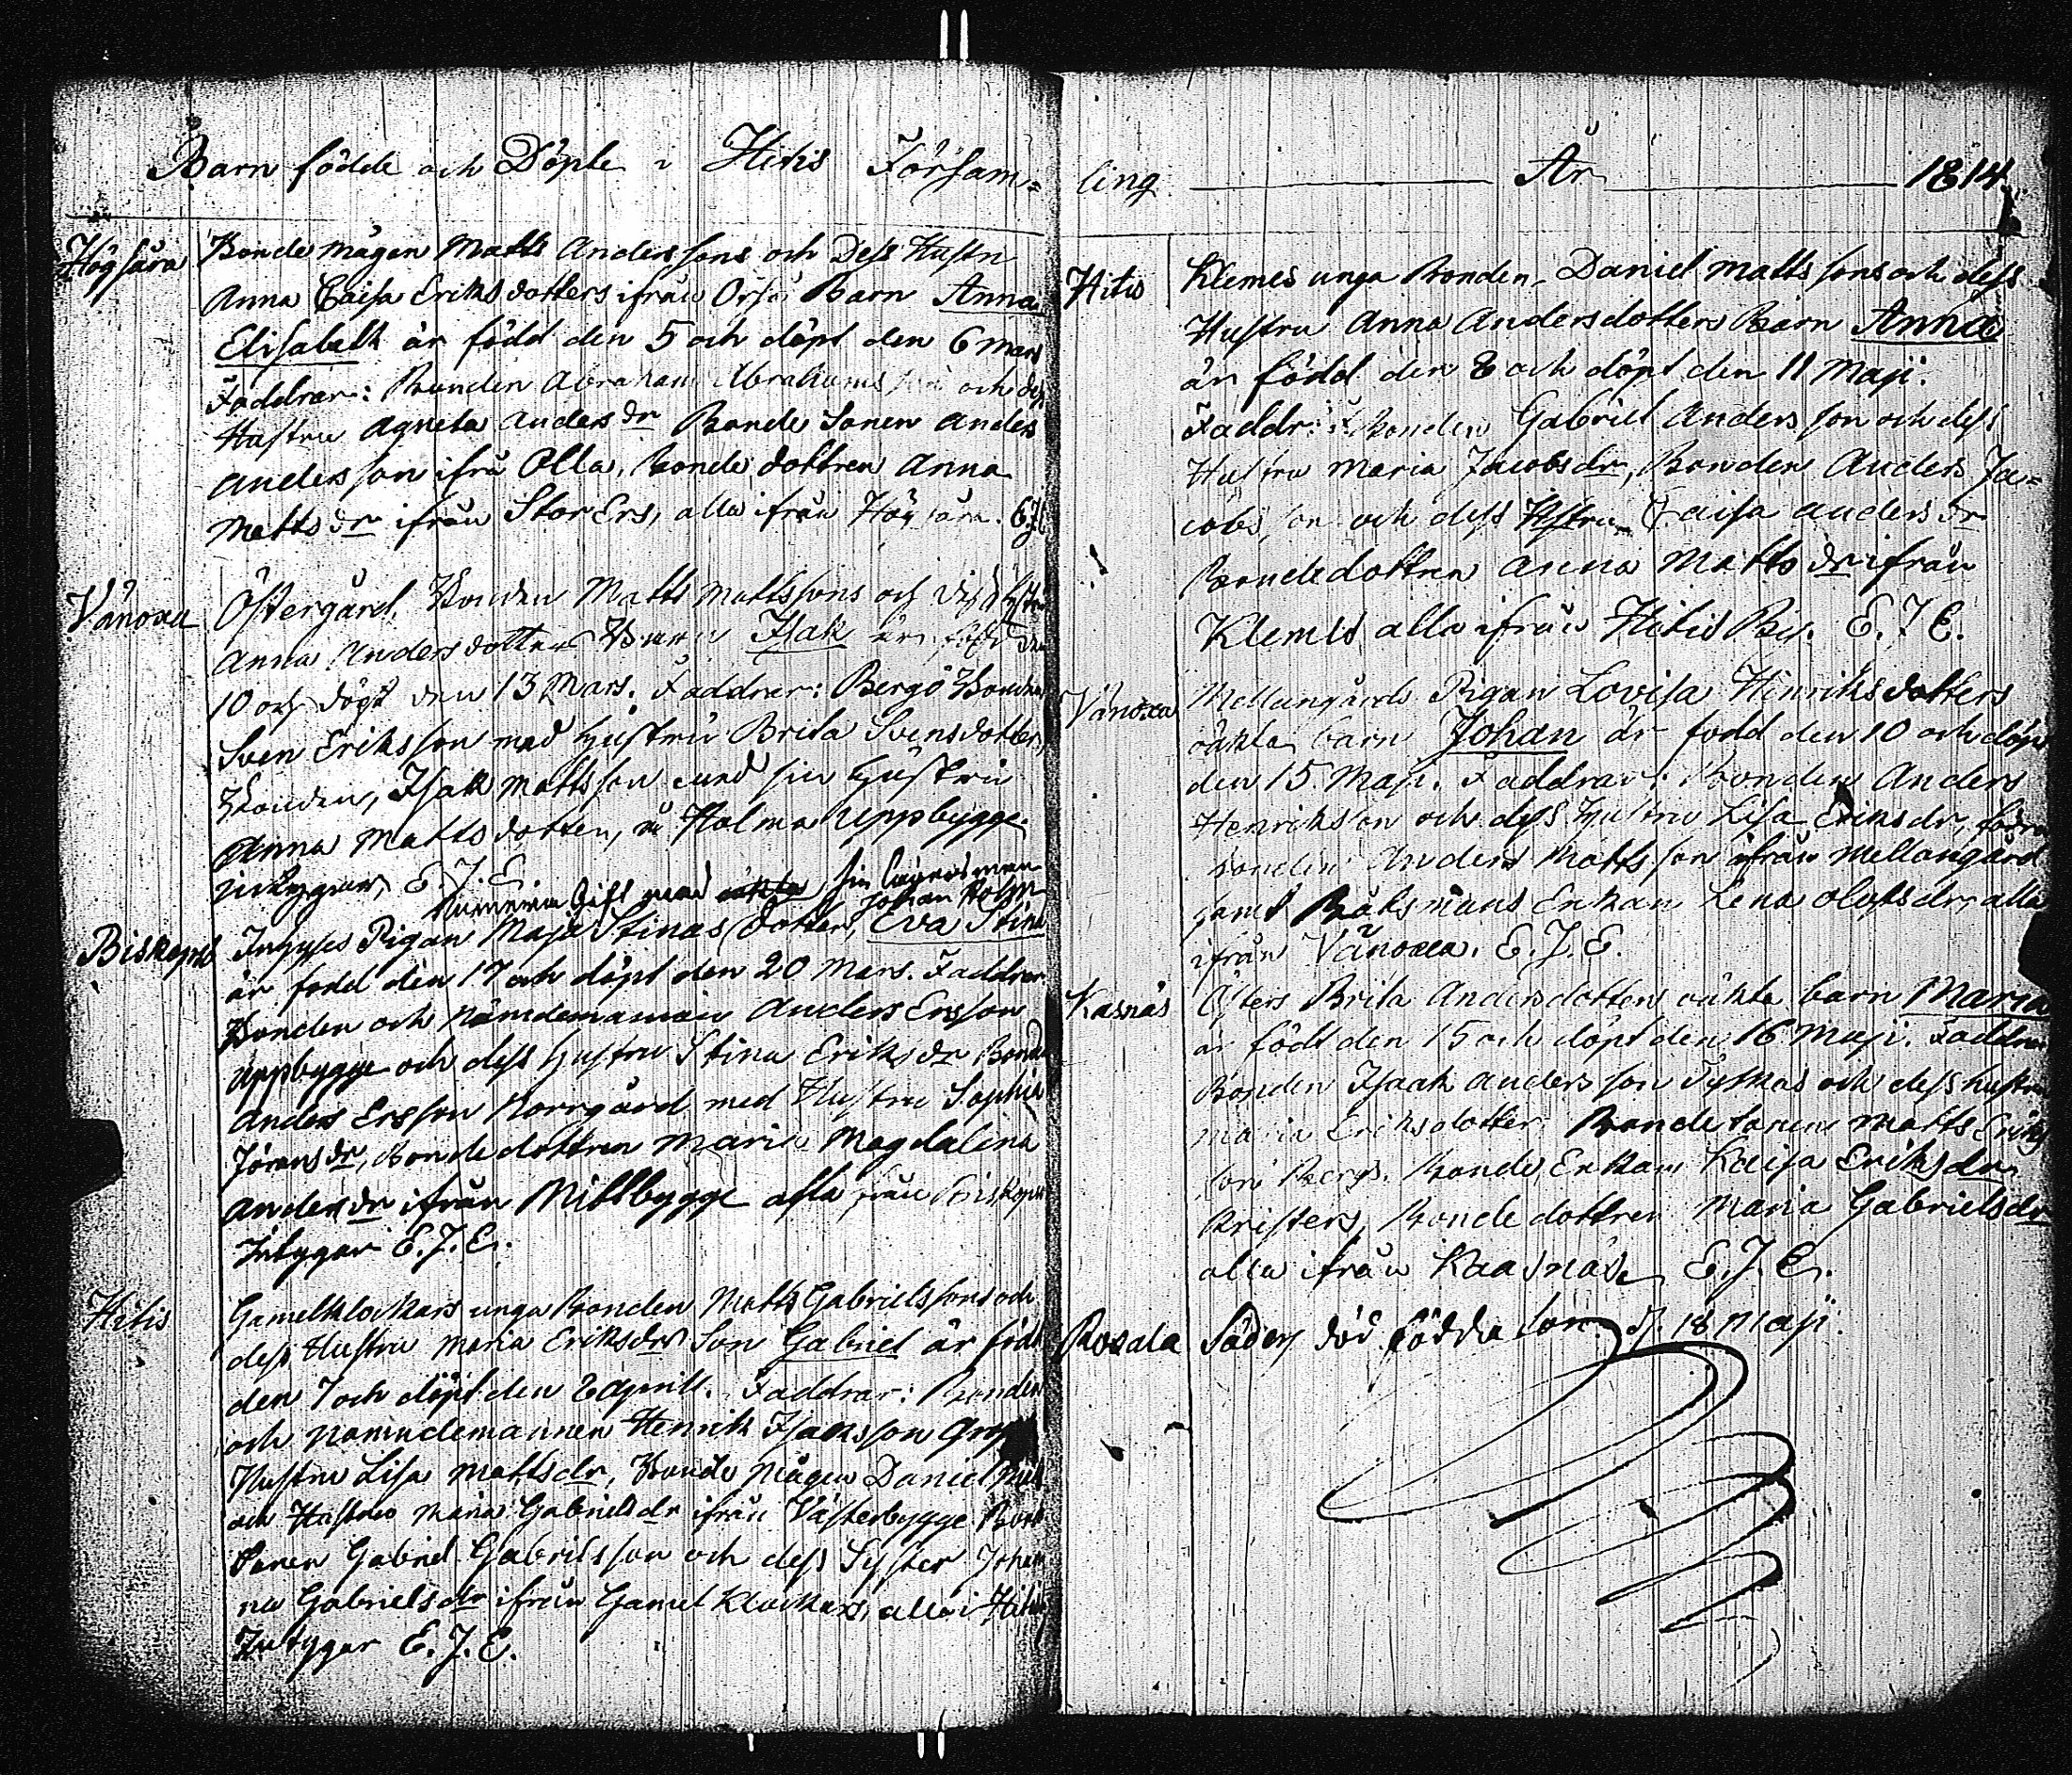 Barn födde och Döpte i Hitis Församling
Högsåra
Bonde mågen Matts Anderssons och Dess Hustru
Anna Caisa Eriksdotters ifrån Barn Anna
Elisabeth är född den 5 och döpt den 6 Mars
Faddrar: Bonden Abraham Abrahamsson och dess
Hustru Agneta Anders dr Bonde Sonen Anders
Andersson ifrå Olla, Bonde dottren Anna
Matts dr ifrån Stor Ers, alla ifrån Högsåra.
Vänoxa
Östergård Bonden Matts Mattssons och
Anna Andersdotters Isak är född den
10 och döpt den 13 Mars. Faddrar: Bergö Bonden
Sven Eriksson med Hustru Brita Svensdotter,
Bonden, Isak Mattsson med sin Hustru
Anna Mattsdotter, Holma Uppbygge
E. J. E.
Gift med
Johan Holm
Biskopsö
Inhyses Pigan Maja Stinas Dotter, Eva Stina
är född den 17 och döpt den 20 Mars. Faddrar
Bonden och Nämdemannen Anders Ersson
Uppbygge och dess Hustru Stina Eriks dr Bonde
Anders Ersson Norrgård med Hustru Sophia
Jörans dr, Bonde dottren Maria Magdalena
Anders dr ifrån Mittbygge alla från Biskopsö
Intygar E. J. E.
Hitis
Gamelklockars unga Bonden Matts Gabrielssons och
dess Hustru Maria Eriksdrs Son Gabriel är född
den 7 och döpt den 8 Aprill. Faddrar: Bonden
och Nämndemannen Henrik Isaksson
Hustru Lisa Matts dr, Bonde Mågen Daniel
och Hustru Maria Gabriels dr ifrån Västerbygge Bonde
Sonen Gabriel Gabrielsson och dess Syster Johan
na Gabriels dr ifrån Gamel Klockars, alla i Hitis
Intygar E. J. E.
ling År 1814
Hitis
Klemes unga Bonden, Daniel Mattssons och dess
Hustru Anna Andersdotters Barn Anna
är född den 8 och döpt den 11 Maji.
Faddr: Bonden Gabriel Andersson och dess
Hustru Maria Jacobs dr, Bonden Anders Ja=
cobsson och dess Hstru Caisa Anders dr
Bondedottren Anna Matts dr ifrån
Klemes alla ifrån Hitis By. E. J. E.
Vänoxa
Mellangårds Pigan Lovisa Hinriksdotters
oäkta barn Johan är född den 10 och döpt
den 15 Maji. Faddrar: Bonden Anders
Henriksson och dess Hustru Lisa Eriks dr,
bonden Anders Mattsson ifrån Mellangård
samt Båtsmans Enkan Lena Olofs dr alla
ifrån Vänoxa. E. J. E.
Kasnäs
Östers Brita Andersdotters oäkta barn Maria
är född den 15 och döpt den 16 Maji. Faddrar
Bonden Isaak Andersson och dess hustru
Maria Eriksdotter Bonde Sonen Matts Eriks
son Bergs. Bonde Enkan Kaisa Eriks dr
Kristers, Bonde dottren Maria Gabriels dr
alla ifrån Kaasnäs E. J. E.
Rosala
Söders död födda son d. 18 Maji.